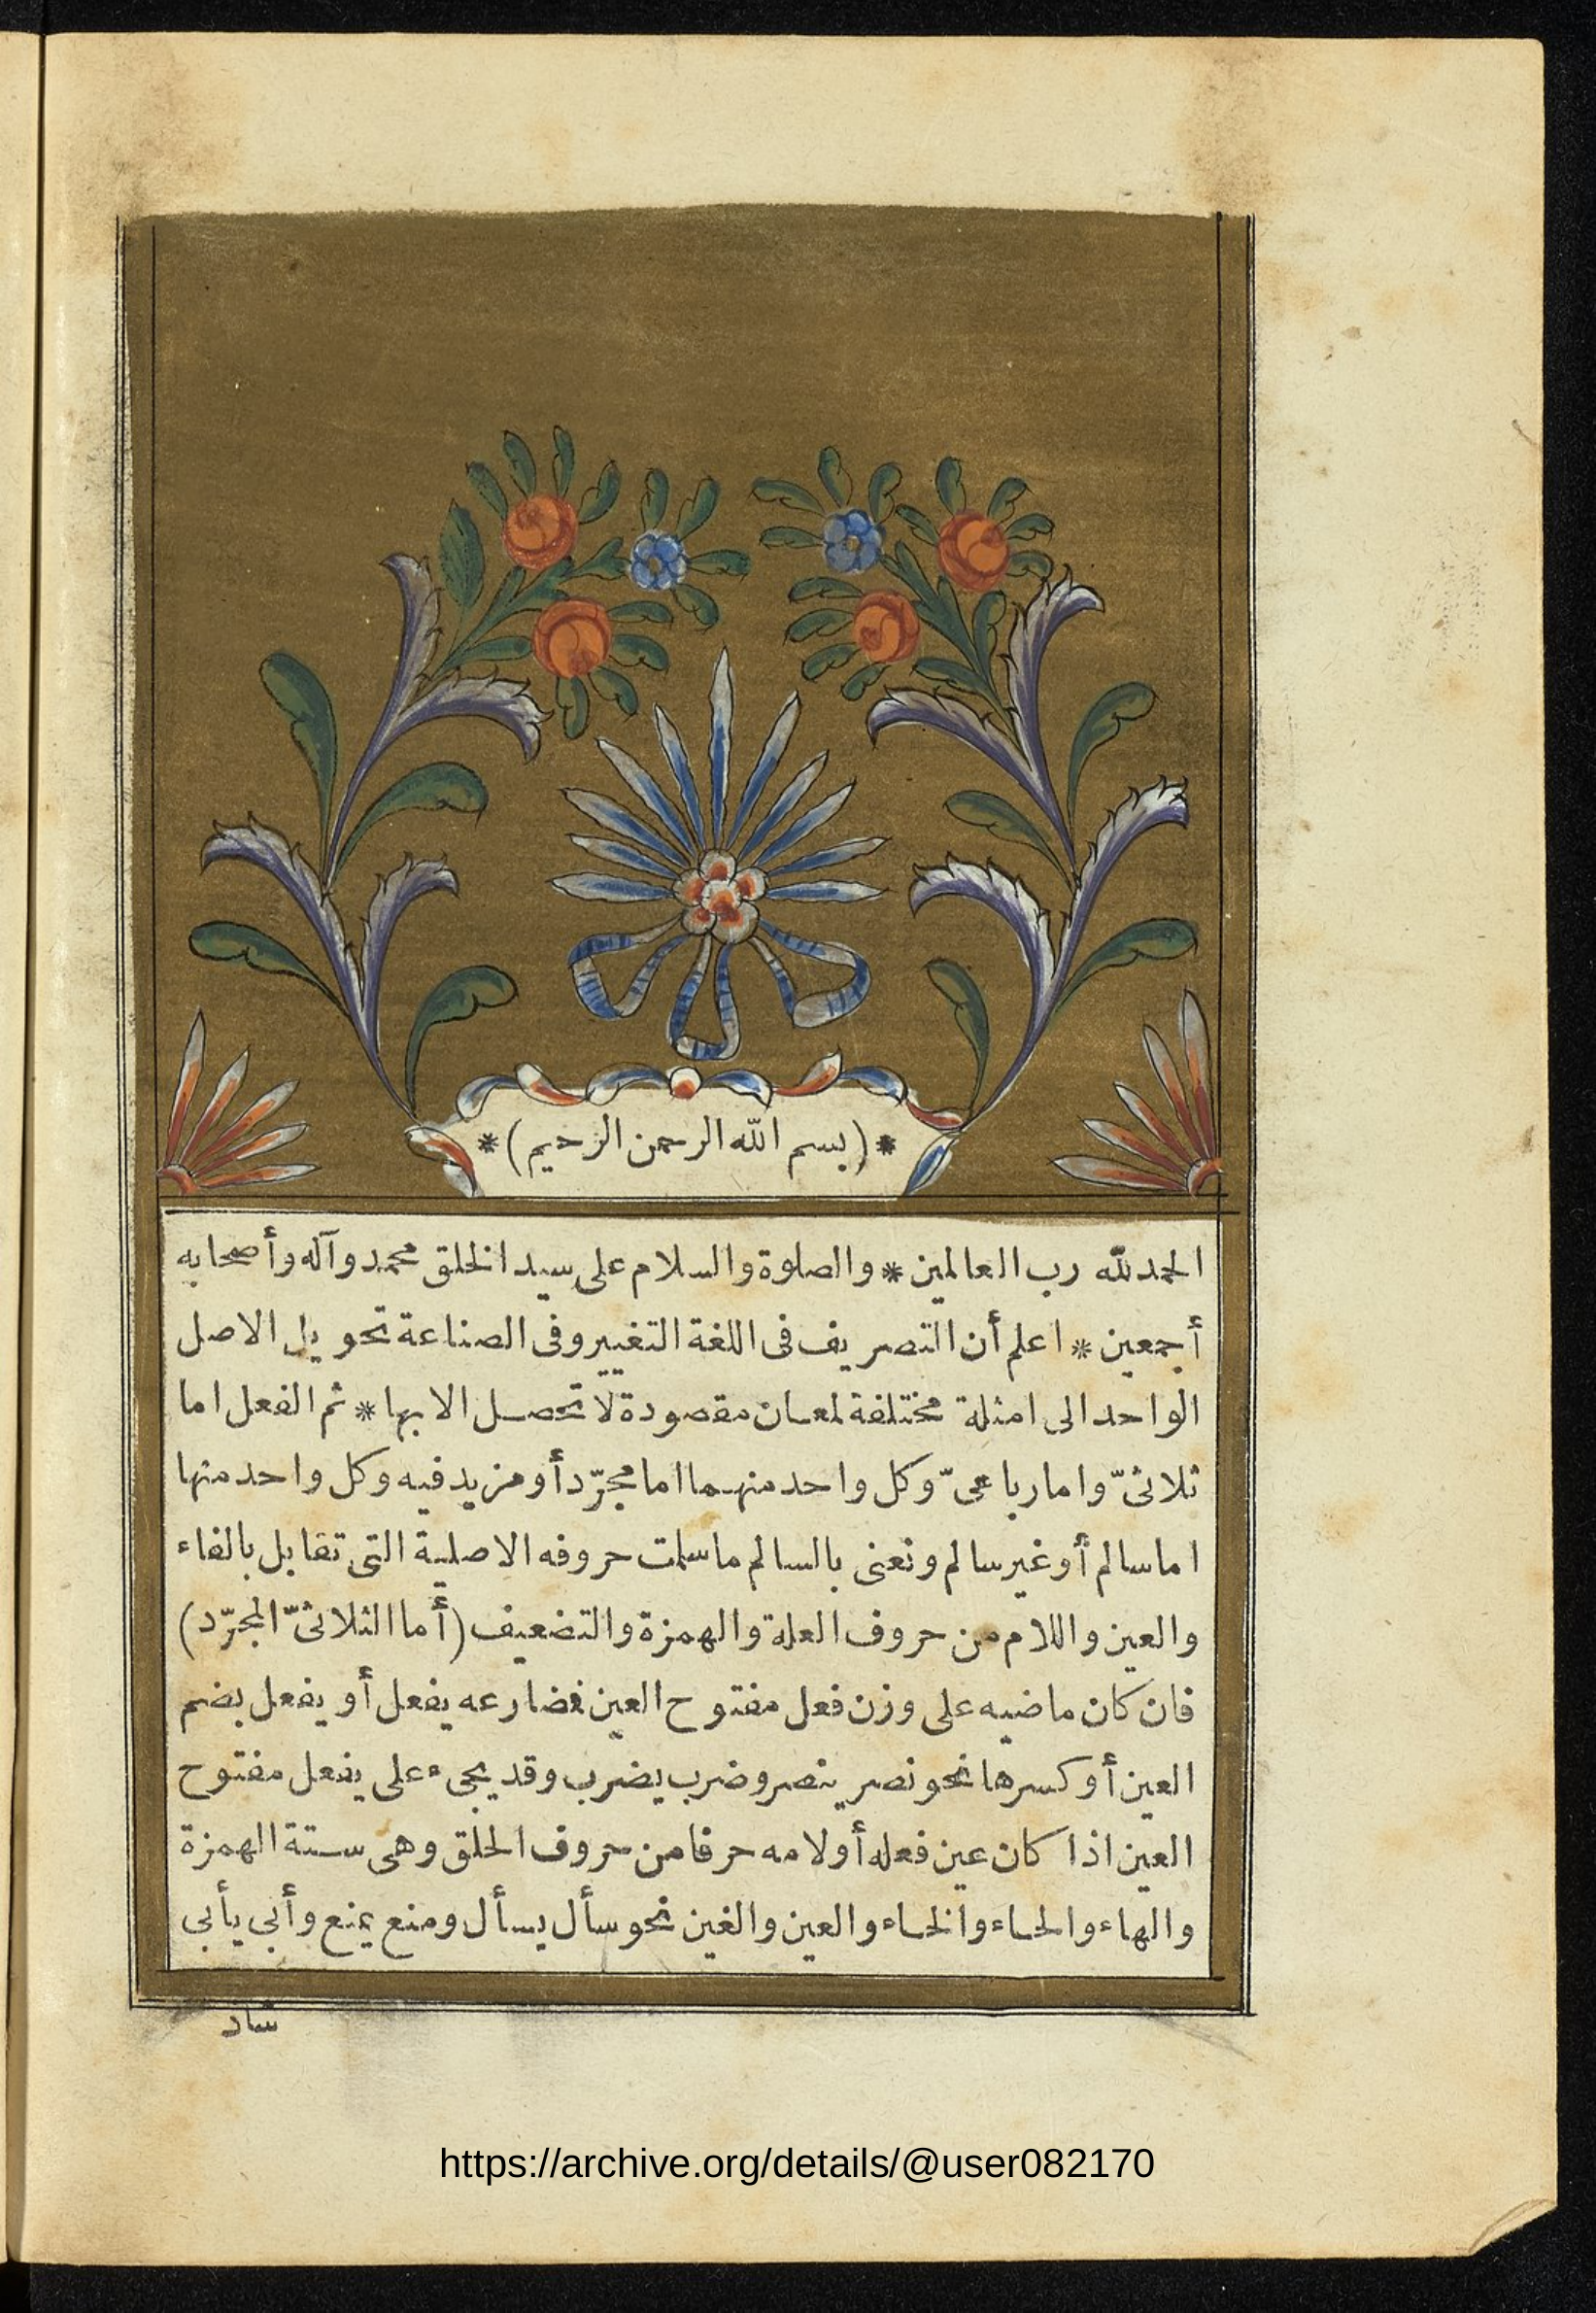 *(بسم الله الرحمن الرحيم)*
الحمد لله رب العالمين * والصلوة والسلام على سيد الخلق محمد وآله وأصحابه
أجمعين * اعلم أن التصريف فى اللغة التغيير وفى الصناعة تحويل الاصل
الواحد الى امثلة مختلفة لمعان مقصودة لا تحصل الا بها * ثم الفعل اما
ثلاثىّ واما رباعىّ وكل واحد منهما اما مجرّد أو مزيد فيه وكل واحد منها
اما سالم أو غير سالم ونعنى بالسالم ما سلمت حروفه الاصلية التى تقابل بالفاء
والعين واللام من حروف العلة والهمزة والتضعيف (أما الثلاثىّ المجرّد)
فان كان ماضيه على وزن فعل مفتوح العين فمضارعه يفعل أو يفعل بضم
العين أو كسرها نحو نصر ينصر وضرب يضرب وقد يجىء على يفعل مفتوح
العين اذا كان عين فعله أو لامه حرفا من حروف الحلق وهى ستة الهمزة
والهاء والحاء والخاء والعين والغين نحو سأل يسأل ومنع يمنع وأبى يأبى
شاد
https://archive.org/details/@user082170